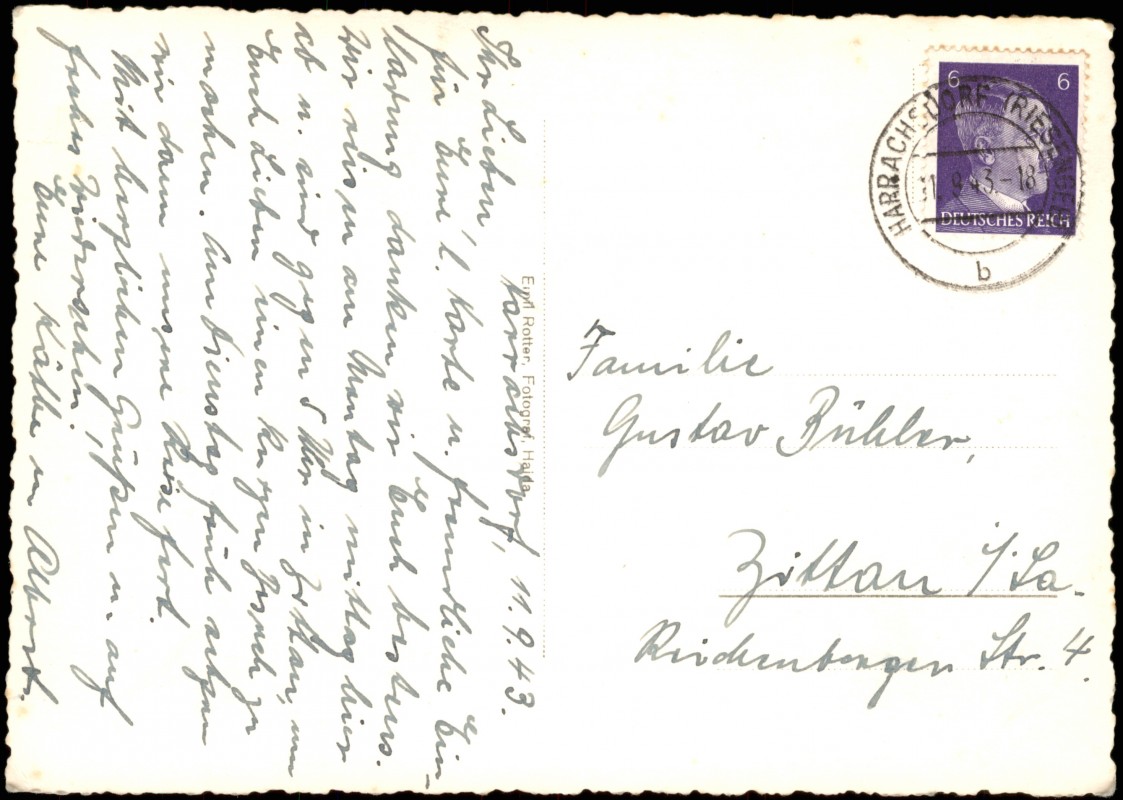 Harrachsdorf, 11.9.43.
Ihr Lieben!
Für Eure l. Karte u. freundliche Ein-
ladung danken wir Euch bestens.
Wir reisen am Montag mittag hier
ab u. sind gegen 5 Uhr in Zittau, um
Euch Lieben einen kurzen Besuch zu
machen. Am Dienstag früh setzen
wir dann unsere Reise fort.
Mit herzlichen Grüßen u. auf
frohes Wiedersehen!
Eure Käthe u. Albert.
Emil Rotter, Fotograf, Haida
6 6
DEUTSCHES REICH
HARRACHSDORF (RIESENGEB
11.9.43.-18
b
Familie
Gustav Bühler,
Zittau i/Sa.
Reichenberger Str. 4.